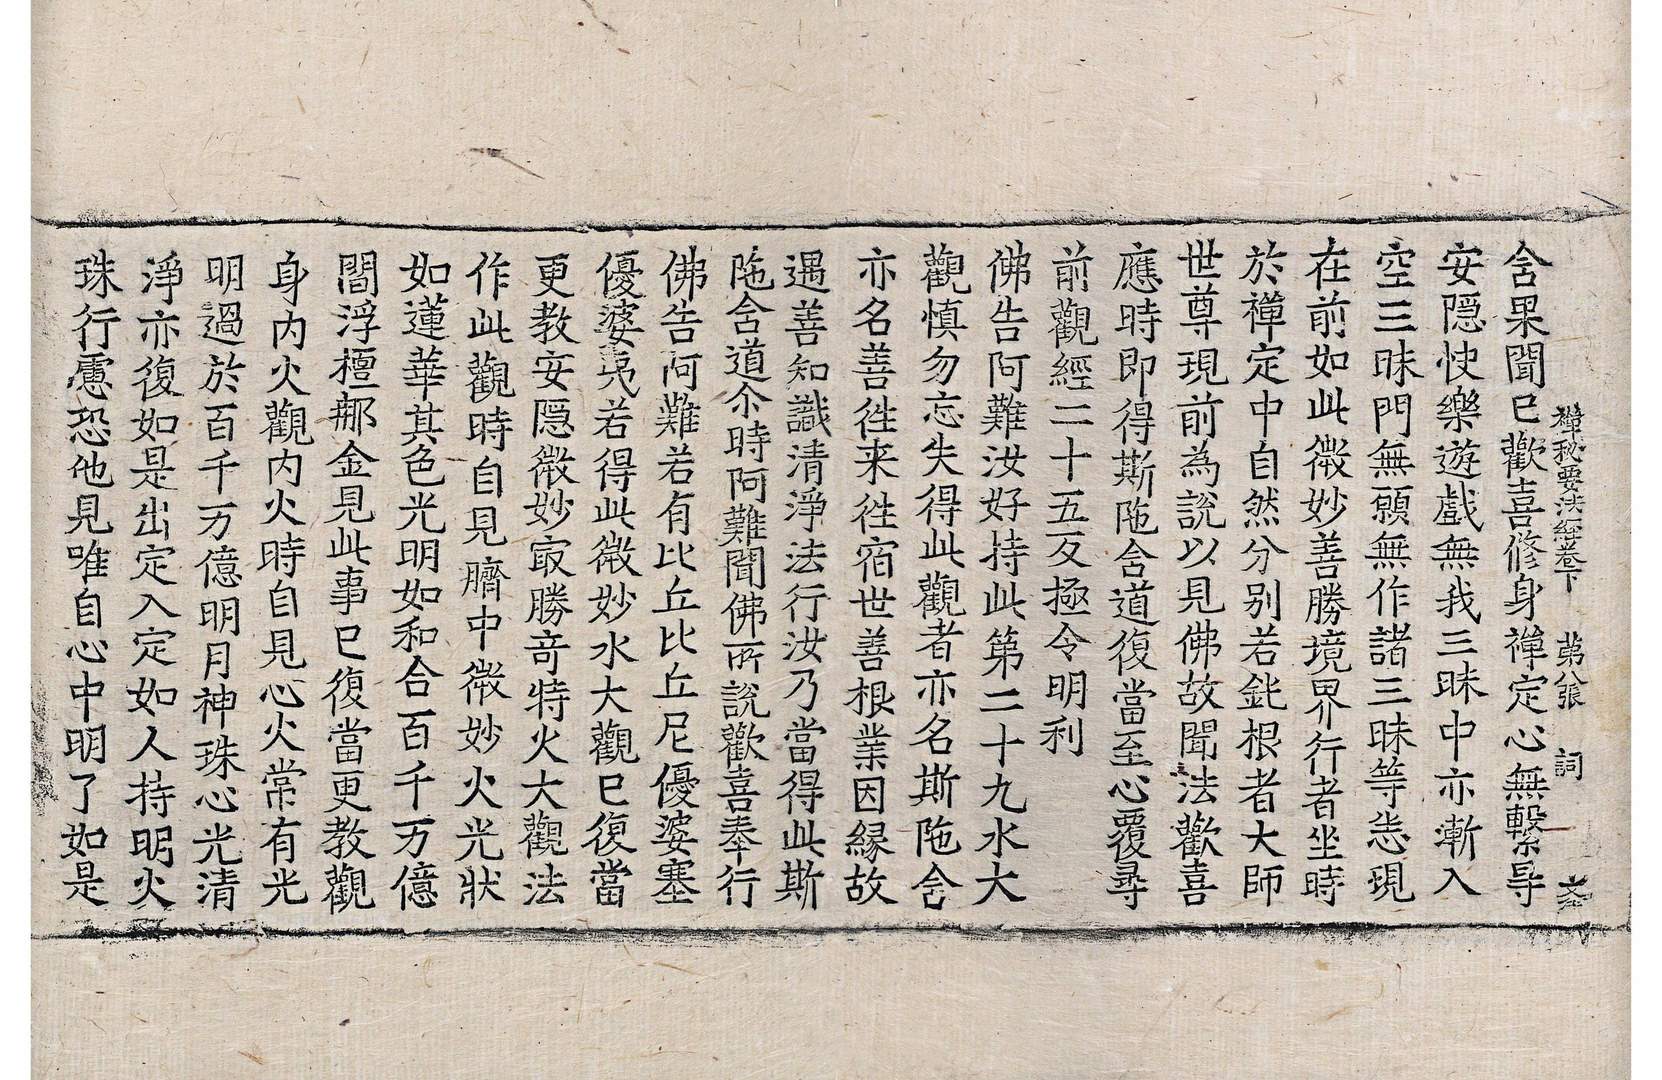 禪秘要法經卷下 第八張 詞
含果聞已歡喜修身禪定心無繫㝵
安隱快樂遊戲無我三昧中亦漸入
空三昧門無願無作諸三昧等悉現
在前如此微妙善勝境界行者坐時
於禪定中自然分別若鈍根者大師
世尊現前為說以見佛故聞法歡喜
應時即得斯陁含道復當至心覆尋
前觀經二十五反極令明利
佛告阿難汝好持此第二十九水大
觀慎勿忘失得此觀者亦名斯陁含
亦名善徃来徃宿世善根業因緣故
遇善知識清淨法行汝乃當得此斯
陁含道尒時阿難聞佛所說歡喜奉行
佛告阿難若有比丘比丘尼優婆塞
優婆夷若得此微妙水大觀已復當
更教安隱微妙㝡勝竒特火大觀法
作此觀時自見臍中微妙火光狀
如蓮華其色光明如和合百千万億
閻浮檀那金見此事已復當更教觀
身內火觀內火時自見心火常有光
明過於百千万億明月神珠心光清
淨亦復如是出定入定如人持明火
珠行處恐他見唯自心中明了如是